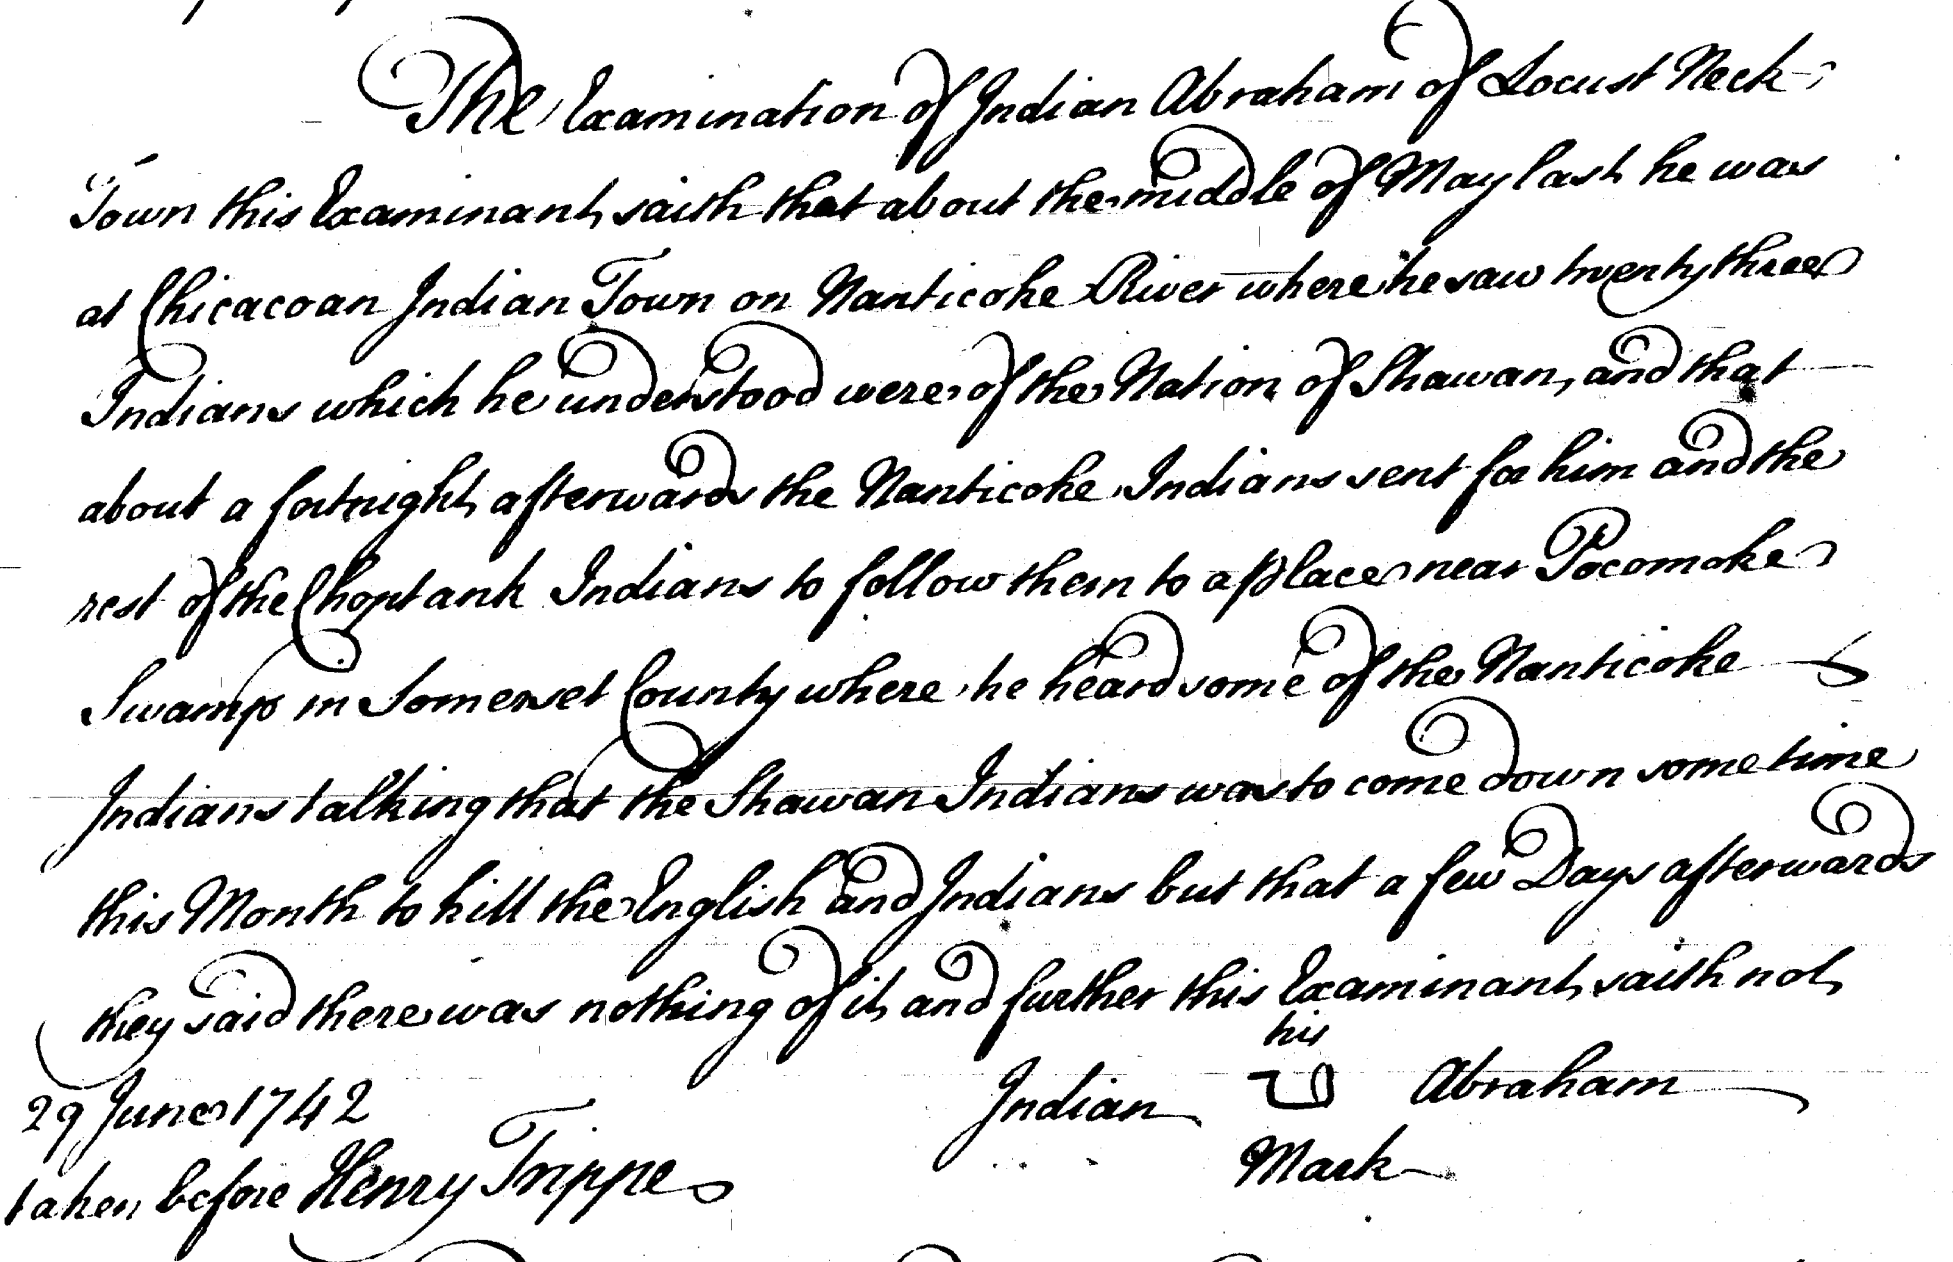 The Examination of Indian Abraham of Locust Neck
Town this Examinant saith that about the middle of May last he was
at Chicacoan Indian Town on Nanticoke River where he saw twenty three
Indians which he understood were of the Nation of Shawan, and that
about a fortnight afterwards the Nanticoke Indians sent for him and the
rest of the Choptank Indians to follow them to a place near Pocomoke
Swamp in Somerset County where he heard some of the Nanticoke
Indians talking that the Shawan Indians was to come down some time
this Month to kill the English and Indians but that a few Days afterwards
they said there was nothing of it and further this Examinant saith not
his
29 June 1742 Indian Abraham
Mark
taken before Henry Trippe